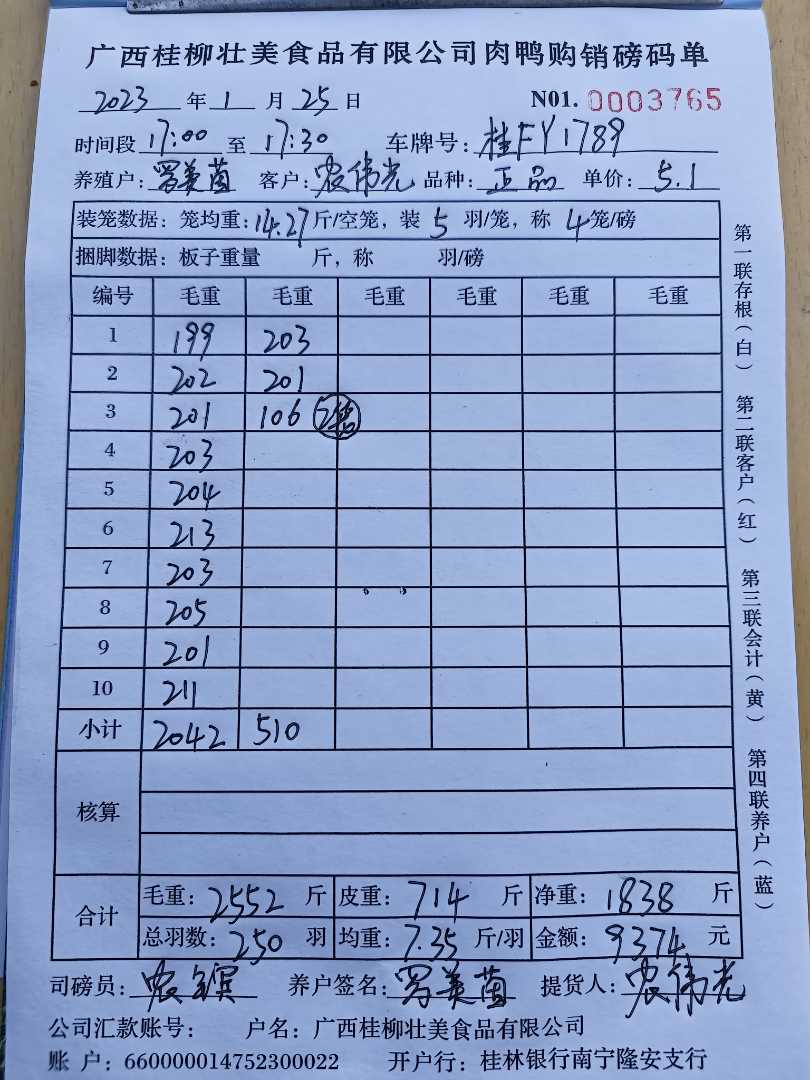 广西桂柳壮美食品有限公司肉鸭购销磅码单
2023 年 1 月 25 日 N01. 0003765
时间段 17:00 至 17:30 车牌号: 桂FY1789
养殖户: 罗美茵 客户: 农伟光 品种: 正品 单价: 5.1
装笼数据: 笼均重: 14.27 斤/空笼, 装 5 羽/笼, 称 4 笼/磅
捆脚数据: 板子重量 斤, 称 羽/磅
编号 毛重 毛重 毛重 毛重 毛重 毛重
1 199 203
2 202 201
3 201 106
4 203
5 204
6 213
7 203
8 205
9 201
10 211
小计 2042 510
核算
合计 毛重: 2552 斤 皮重: 714 斤 净重: 1838 斤
总羽数: 250 羽 均重: 7.35 斤/羽 金额: 9374 元
司磅员: 农 养户签名: 罗美茵 提货人: 农伟光
公司汇款账号: 户名: 广西桂柳壮美食品有限公司
账 户: 660000014752300022 开户行: 桂林银行南宁隆安支行
第一联存根(白) 第二联客户(红) 第三联会计(黄) 第四联养户(蓝)